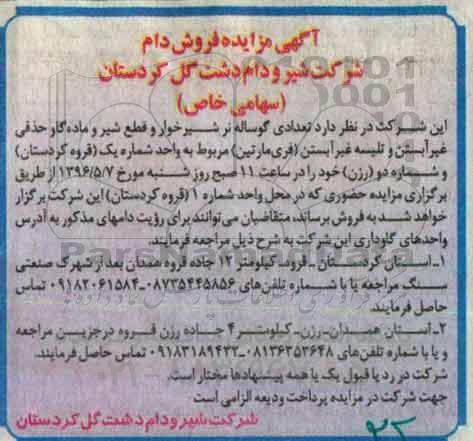 آگهی مزایده فروش دام
شرکت شیر و دام دشت گل کردستان
(سهامی خاص)
این شرکت در نظر دارد تعدادی گوساله نر شیرخوار و قطع شیر و ماده گاو حذفی
غیر آبستن و تلیسه غیر آبستن (فری‌مارتین) مربوط به واحد شماره یک (قروه کردستان)
و شماره دو (رزن) خود را در ساعت ۱۱ صبح روز شنبه مورخ ۱۳۹۶/۵/۷ از طریق
برگزاری مزایده حضوری که در محل واحد شماره ۱ (قروه کردستان) این شرکت برگزار
خواهد شد به فروش برساند، متقاضیان می‌توانند برای رؤیت دامهای مذکور به آدرس
واحدهای گاوداری این شرکت به شرح ذیل مراجعه فرمایند.
۱ـ استان کردستان ـ قروه ـ کیلومتر ۱۲ جاده قروه همدان بعد از شهرک صنعتی
سنگ مراجعه یا با شماره تلفن‌های ۰۸۷۳۵۴۴۵۸۵۶ـ۰۹۱۸۲۰۶۱۵۸۴ تماس
حاصل فرمایند.
۲ـ استان همدان ـ رزن ـ کیلومتر ۴ جاده رزن قروه درجزین مراجعه
و یا با شماره تلفن‌های ۰۸۱۳۶۳۵۳۶۴۸ـ۰۹۱۸۳۱۸۹۴۳۲ تماس حاصل فرمایند.
شرکت در رد یا قبول یک یا همه پیشنهادها مختار است.
جهت شرکت در مزایده پرداخت ودیعه الزامی است
شرکت شیر و دام دشت گل کردستان